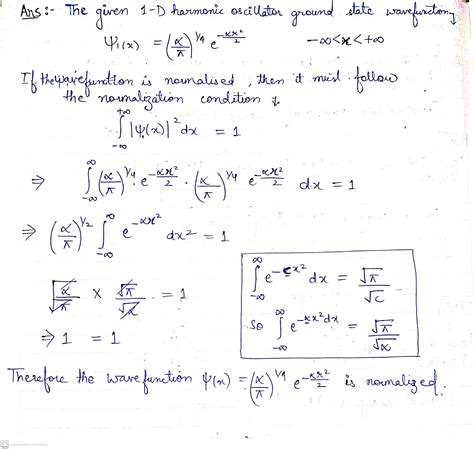 Ans :- The given 1-D harmonic oscillator ground state wavefunction,
Ψ₁(x) = (α/π)^1/4 e^-αx²/2   -∞<x<+∞
If the wavefunction is normalised, then it must follow
the normalization condition,
∫_-∞^+∞ |Ψ(x)|² dx = 1
⇒ ∫_-∞^∞ (α/π)^1/4 e^-αx²/2 . (α/π)^1/4 e^-αx²/2 dx = 1
⇒ (α/π)^1/2 ∫_-∞^∞ e^-αx² dx² = 1
√α/√π × √π/√α = 1
⇒ 1 = 1
∫_-∞^∞ e^-cx² dx = √π/√c
so ∫_-∞^∞ e^-αx² dx = √π/√α
Therefore the wave function ψ(x) = (α/π)^1/4 e^-αx²/2 is normalized.